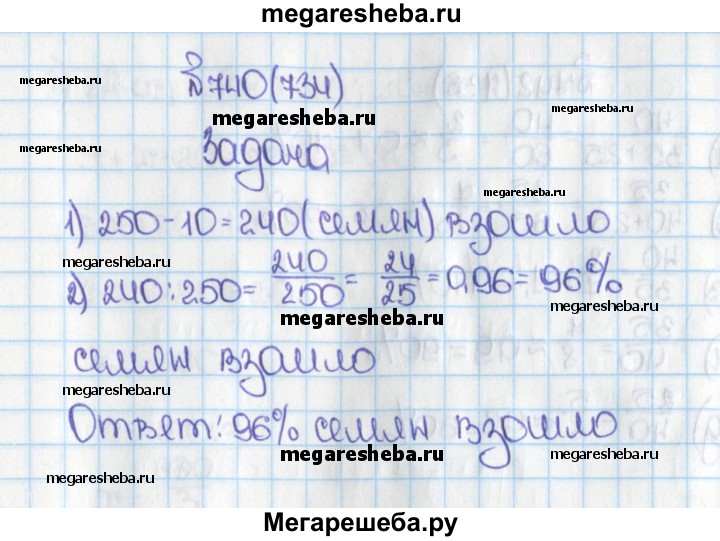 megaresheba.ru
megaresheba.ru
№740(734)
megaresheba.ru
megaresheba.ru
megaresheba.ru
Задача
megaresheba.ru
1) 250-10=240(семян) взошло
megaresheba.ru
2) 240:250= 240/250 = 24/25 = 0,96= 96%
megaresheba.ru
megaresheba.ru
семян взошло
megaresheba.ru
megaresheba.ru
Ответ: 96% семян взошло
megaresheba.ru
megaresheba.ru
megaresheba.ru
Мегарешеба.ру